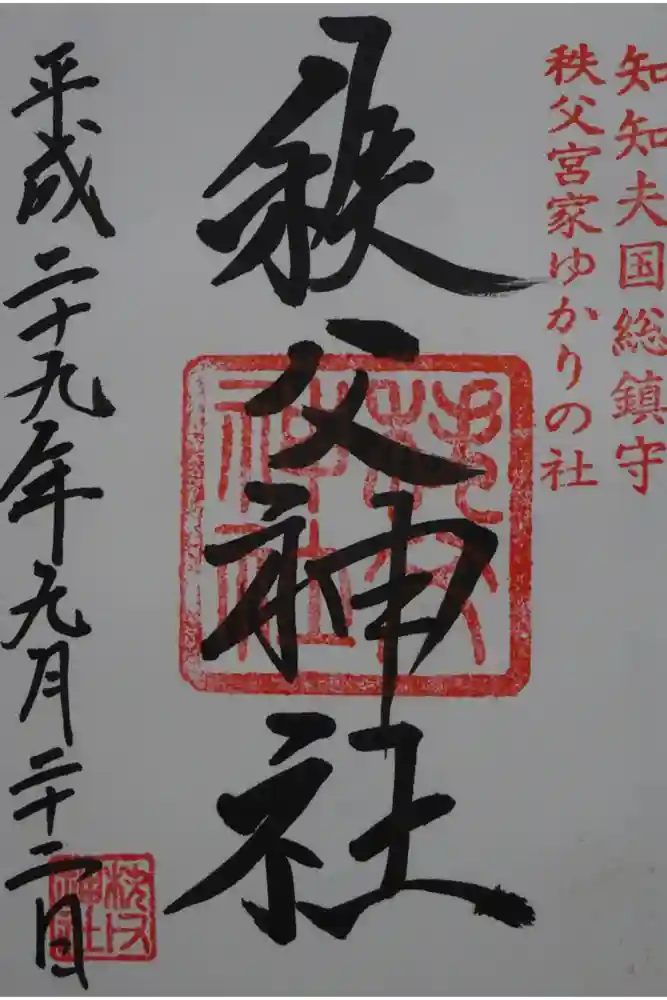 知知夫国総鎮守
秩父宮家ゆかりの社
秩父神社
秩父神社
平成二十九年九月二十二日
秩父神社